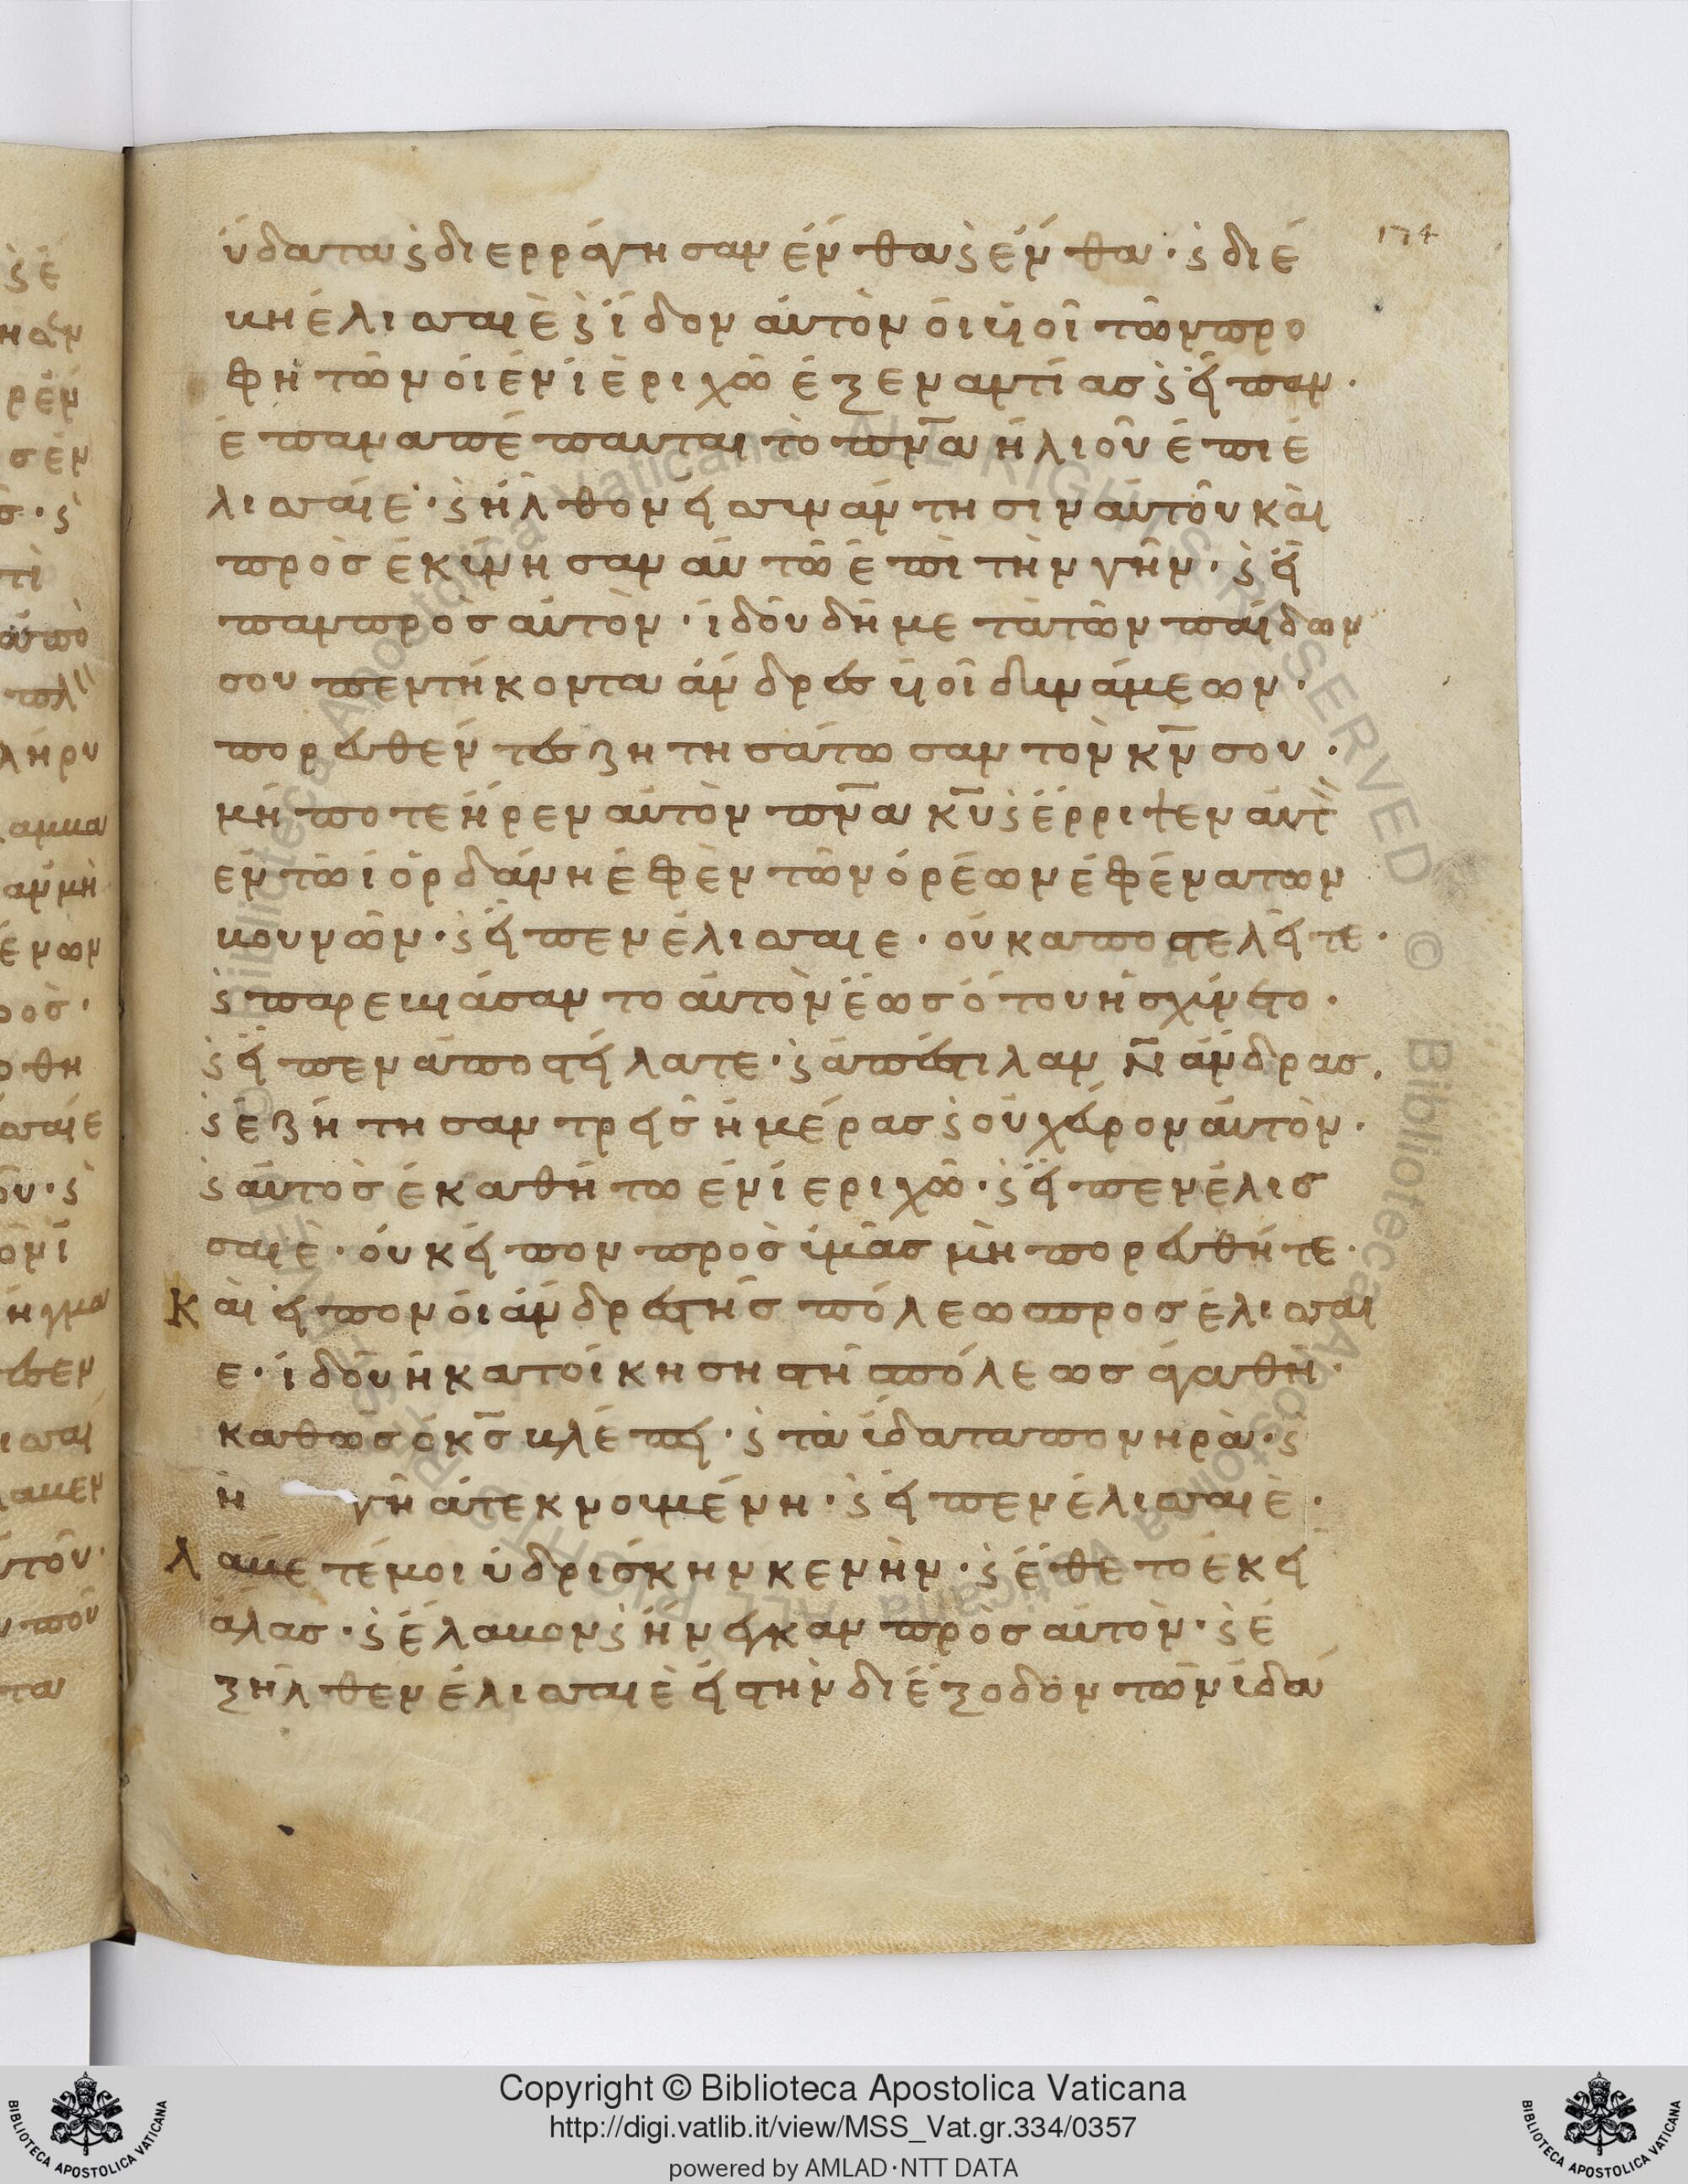 174
ὕδατα ϗ διερράγησαν ἔνθα ϗ ἔνθα · ϗ διέ
βη ἐλισσαιὲ ϗ ἴδον αὐτὸν οἱ υἱοὶ τῶν προ
φητῶν οἱ ἐν ἱὲριχῶ ἐξεναντίασ ϗ εἶπαν ·
ἐπαναπέπαυται τὸ πν̅α ἠλιοῦ ἐπι ἐ
λισσαίε · ϗ ἦλθον εἰσυνάντησιν αὐτοῦ καὶ
προσἐκύνησαν αὐτῶ ἐπὶ τὴν γῆν · ϗ εἶ
παν πρὸσ αὐτὸν · ἰδοῦ δὴ μετὰ τῶν παίδων
σου πεντήκοντα άνδρεσ υἱοὶ δυνάμεων ·
πορευθέντεσ ζητησάτωσαν τὸν κ̅ν σου ·
μήποτε ἦρεν αὐτὸν πν̅α κ̅υ ϗ ἔρριψεν αὐτ
ἐν τῶ ἰὀρδάνη ἐφ ἓν τῶν ὀρέων ἐφ ἕνα των
βουνῶν · ϗ εἶπεν ἐλισσαιε · οὐκ αποστελεῖτε ·
ϗ παρεβιάσαντο αὐτὸν ἕωσ ὅτου ἠσχύνετο ·
ϗ εἶπεν ἀποστείλατε · ϗ ἀπέστιλαν ν̅ ἄνδρασ ·
ϗ ἐζήτησαν τρεῖσ ἡμέρασ ϗ οὐχεύρον αὐτὸν ·
ϗ αὐτὸσ ἐκαθήτω ἐν ἱεριχῶ · ϗ εἶπεν ἐλισ
σαιὲ · οὐκ εἶπον πρὸσ ὑμᾶσ μὴ πορευθῆτε ·
Καὶ εἶπον οἱ άνδρεστῆσ πόλεωσ προσ ἐλισσαι
ε · ἰδοῦ ἡ κατοίκησησ τῆ πόλεωσ ἀγαθὴ ·
καθὼσ ὁ κ̅σ βλέπει · ϗ τὰ ὕδατα πονηρὰ · ϗ
ἡ γῆ ἀτεκνουμένη · ϗ εἶπεν ἐλισσαιὲ ·
Λαβετέ μοι ὑδρίσκην κενὴν · ϗ ἔθετο ἐκεῖ
άλασ · ϗ ἔλαβον ϗ ἤνεγκαν πρὸσ αὐτὸν · ϗ ἐ
ξῆλθεν ἐλισσαιὲ εἰστὴν διέξοδον τῶν ὑδά
Copyright © Biblioteca Apostolica Vaticana
http://digi.vatlib.it/view/MSS_Vat.gr.334/0357
powered by AMLAD·NTT DATA
BIBLIOTECA APOSTOLICA VATICANA
BIBLIOTECA APOSTOLICA VATICANA